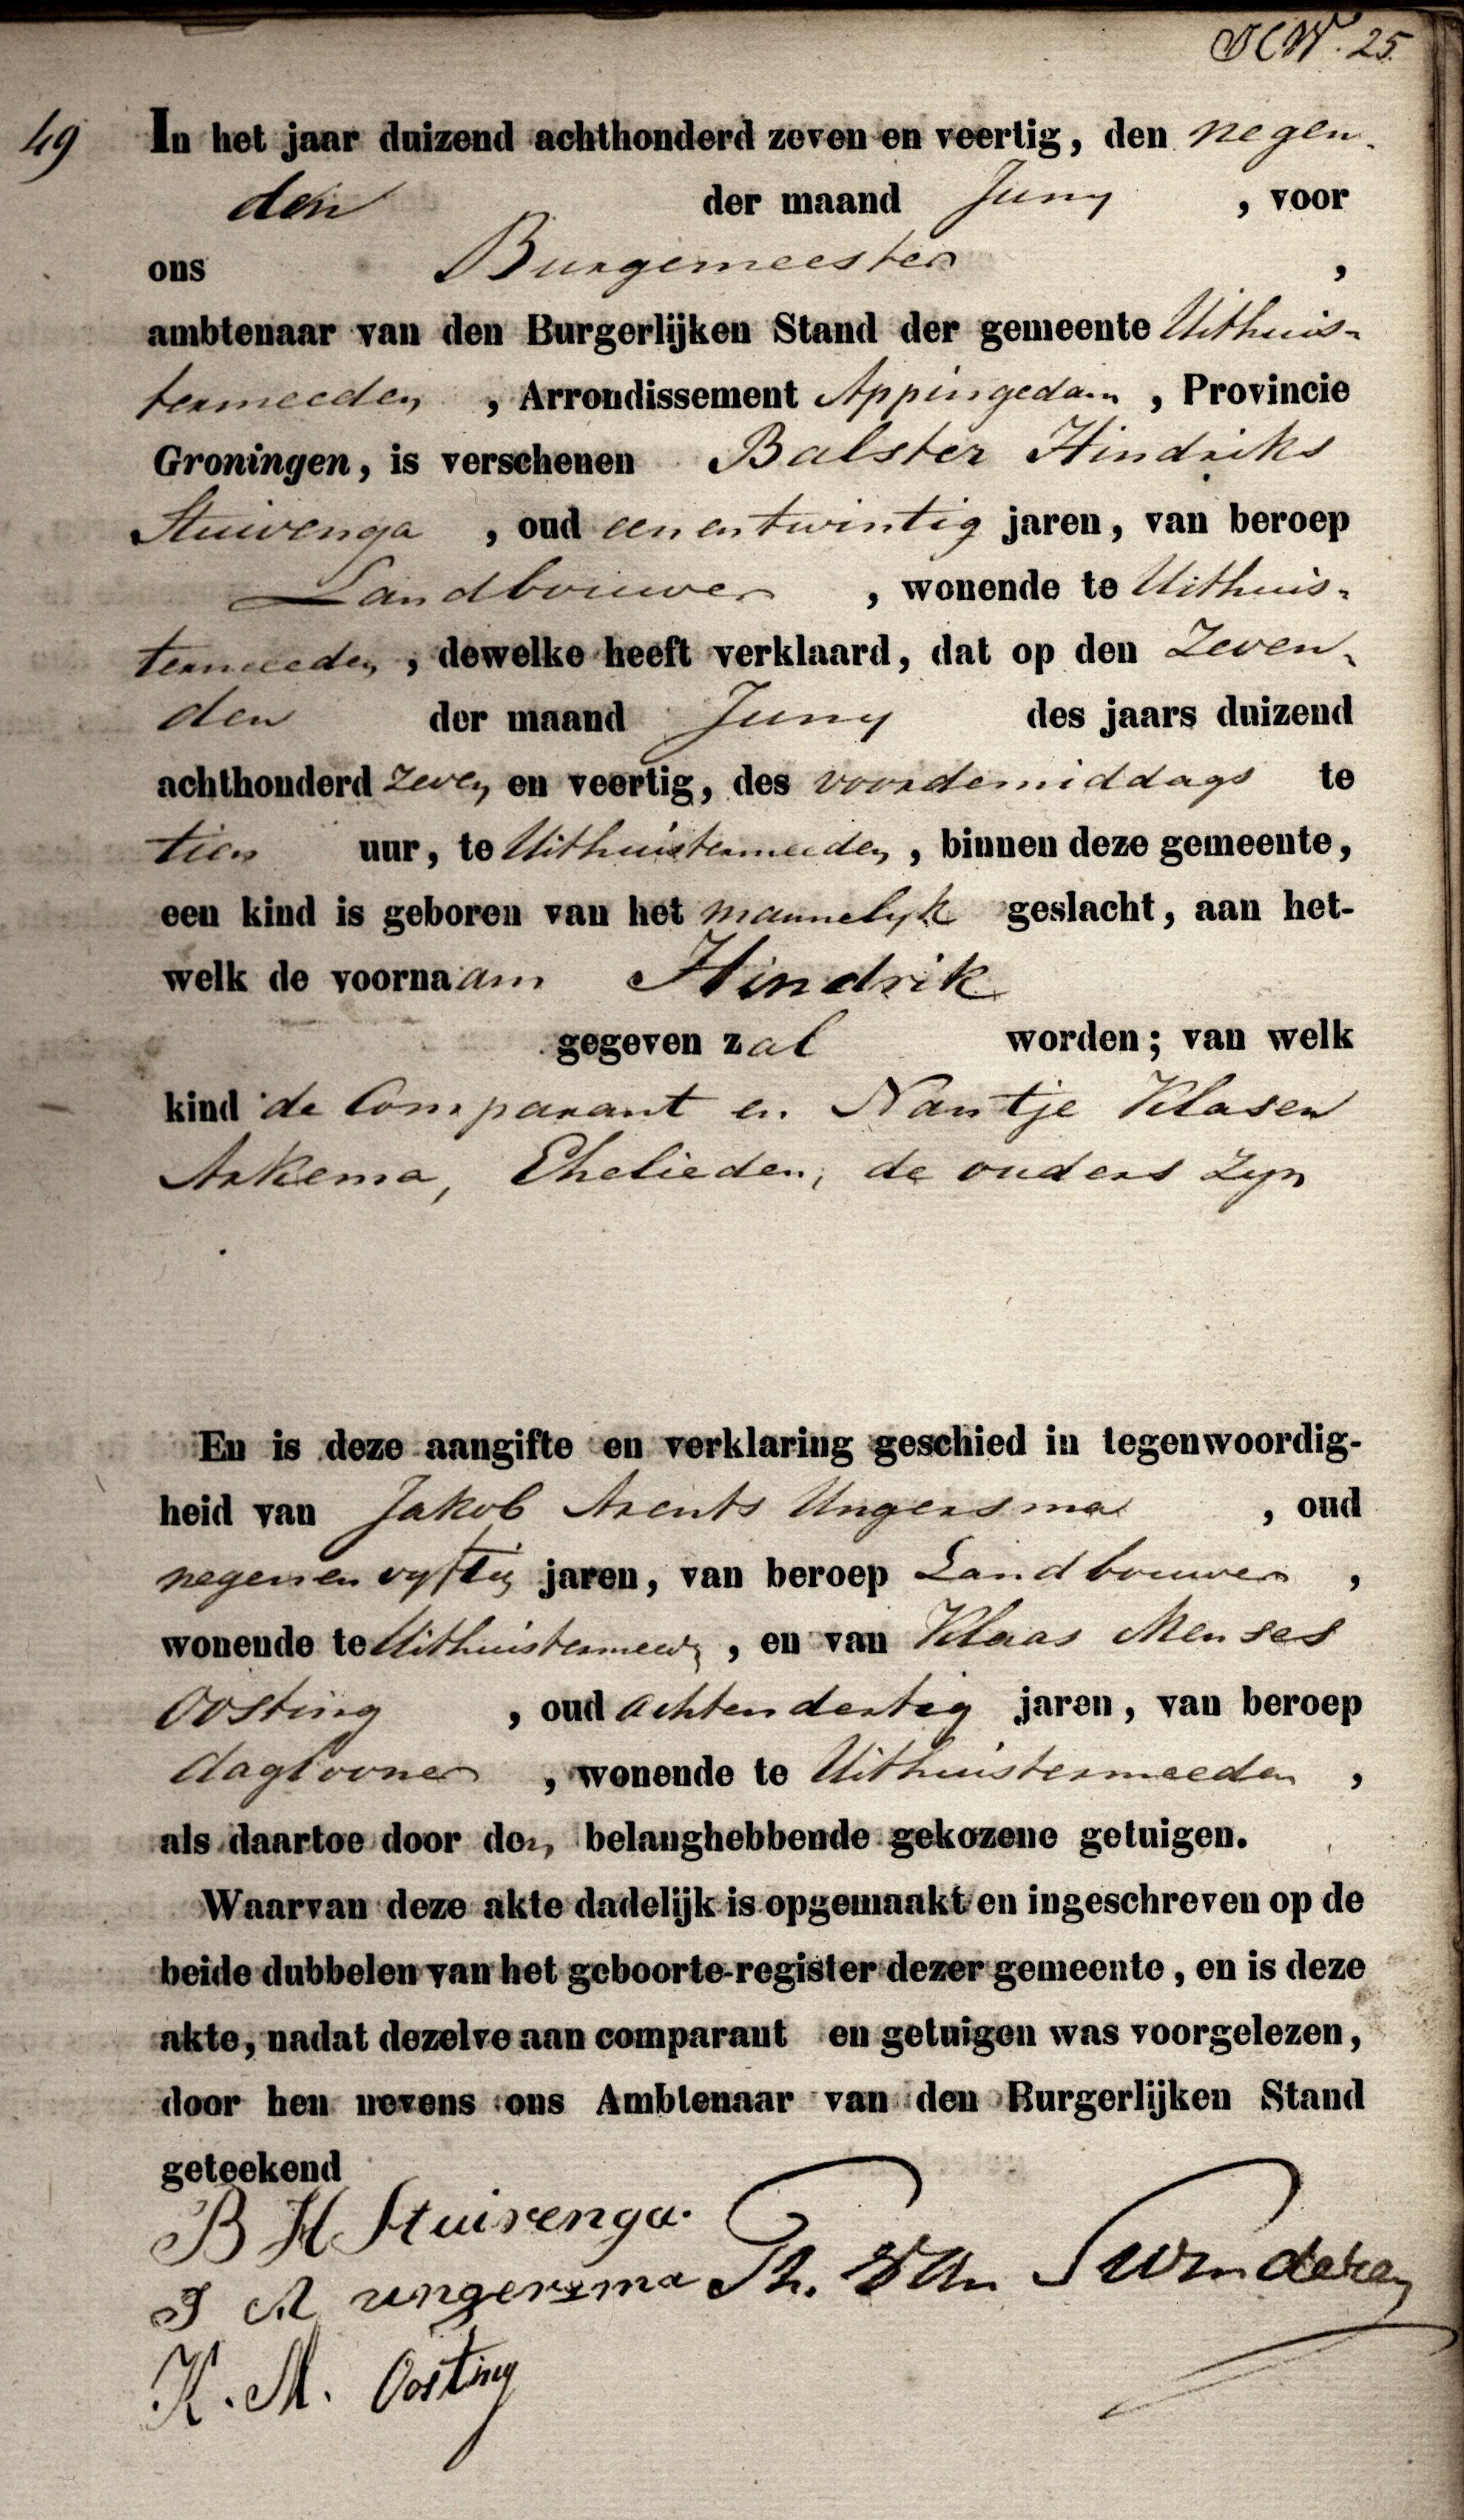 25.
49 In het jaar duizend achthonderd zeven en veertig, den negen-
den der maand Juny , voor
ons Burgemeester ,
ambtenaar van den Burgerlijken Stand der gemeente Uithuis-
termeeden , Arrondissement Appingedam , Provincie
Groningen, is verschenen Balster Hindriks
Stuivenga , oud eenentwintig jaren, van beroep
Landbouwer , wonende te Uithuis-
termeeden , dewelke heeft verklaard, dat op den Zeven-
den der maand Juny des jaars duizend
achthonderd zeven en veertig, des voordemiddags te
tien uur, te Uithuistermeeden , binnen deze gemeente,
een kind is geboren van het mannelyk geslacht, aan het-
welk de voornaam Hindrik
gegeven zal worden; van welk
kind de Comparant en Nantje Klasen
Arkema, Ehelieden, de ouders zyn
En is deze aangifte en verklaring geschied in tegenwoordig-
heid van Jakob Arents Ungersma , oud
negenenvyftig jaren, van beroep Landbouwer ,
wonende te Uithuistermeeden , en van Klaas Menses
Oosting , oud achtendertig jaren, van beroep
daglooner , wonende te Uithuistermeeden ,
als daartoe door den belanghebbende gekozene getuigen.
Waarvan deze akte dadelijk is opgemaakt en ingeschreven op de
beide dubbelen van het geboorte-register dezer gemeente, en is deze
akte, nadat dezelve aan comparant en getuigen was voorgelezen,
door hen nevens ons Ambtenaar van den Burgerlijken Stand
geteekend
B H Stuivenga.
J A ungersma Th. Van Swinderen
K. M. Oosting